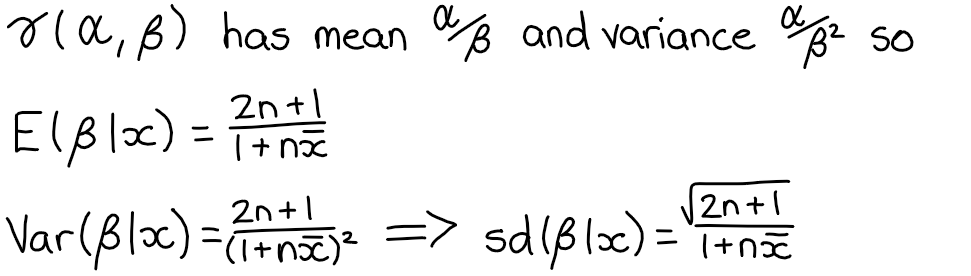 γ(α, β) has mean α/β and variance α/β² so
E(β|x) = (2n+1)/(1+nx̄)
Var(β|x) = (2n+1)/(1+nx̄)² ⟹ sd(β|x) = √(2n+1)/(1+nx̄)